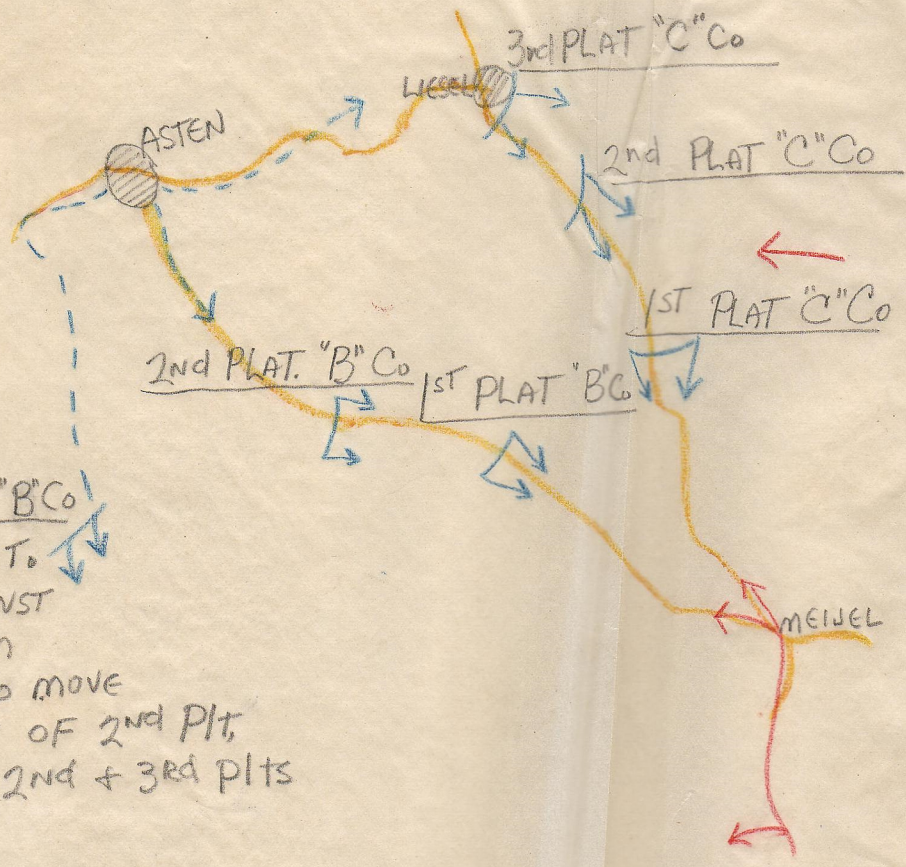 3rd PLAT "C" Co
LIESEL
ASTEN
2nd PLAT "C" Co
1ST PLAT "C" Co
2nd PLAT. "B" Co
1ST PLAT "B" Co
"B" Co
To
MEIJEL
MOVE
OF 2nd Plt,
2nd + 3rd plts